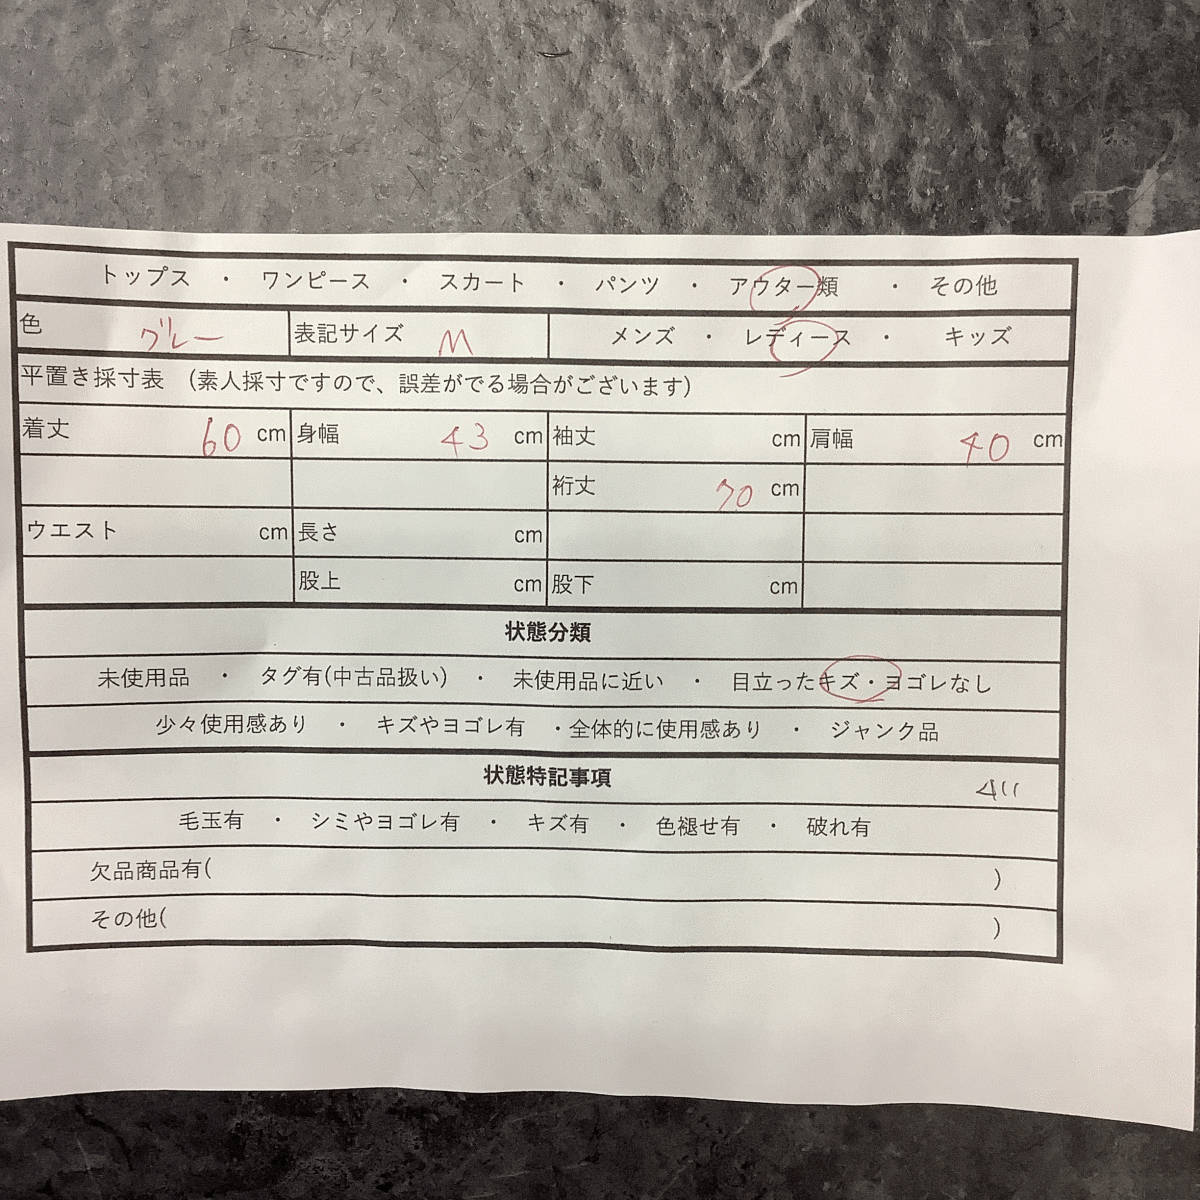 トップス ・ ワンピース ・ スカート ・ パンツ ・ アウター類 ・ その他
色 グレー 表記サイズ M メンズ ・ レディース ・ キッズ
平置き採寸表 (素人採寸ですので、誤差がでる場合がございます)
着丈 60 cm 身幅 43 cm 袖丈 cm 肩幅 40 cm
裄丈 70 cm
ウエスト cm 長さ cm
股上 cm 股下 cm
状態分類
未使用品 ・ タグ有(中古品扱い) ・ 未使用品に近い ・ 目立ったキズ・ヨゴレなし
少々使用感あり ・ キズやヨゴレ有 ・全体的に使用感あり ・ ジャンク品
状態特記事項 411
毛玉有 ・ シミやヨゴレ有 ・ キズ有 ・ 色褪せ有 ・ 破れ有
欠品商品有( )
その他( )